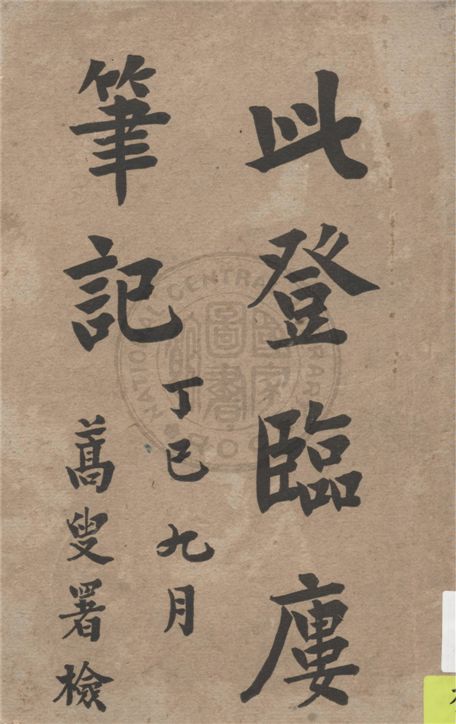 此登臨廔
筆記
丁巳九月
蒿叟署檢
NATIONAL CENTRAL LIBRARY
國家圖書館